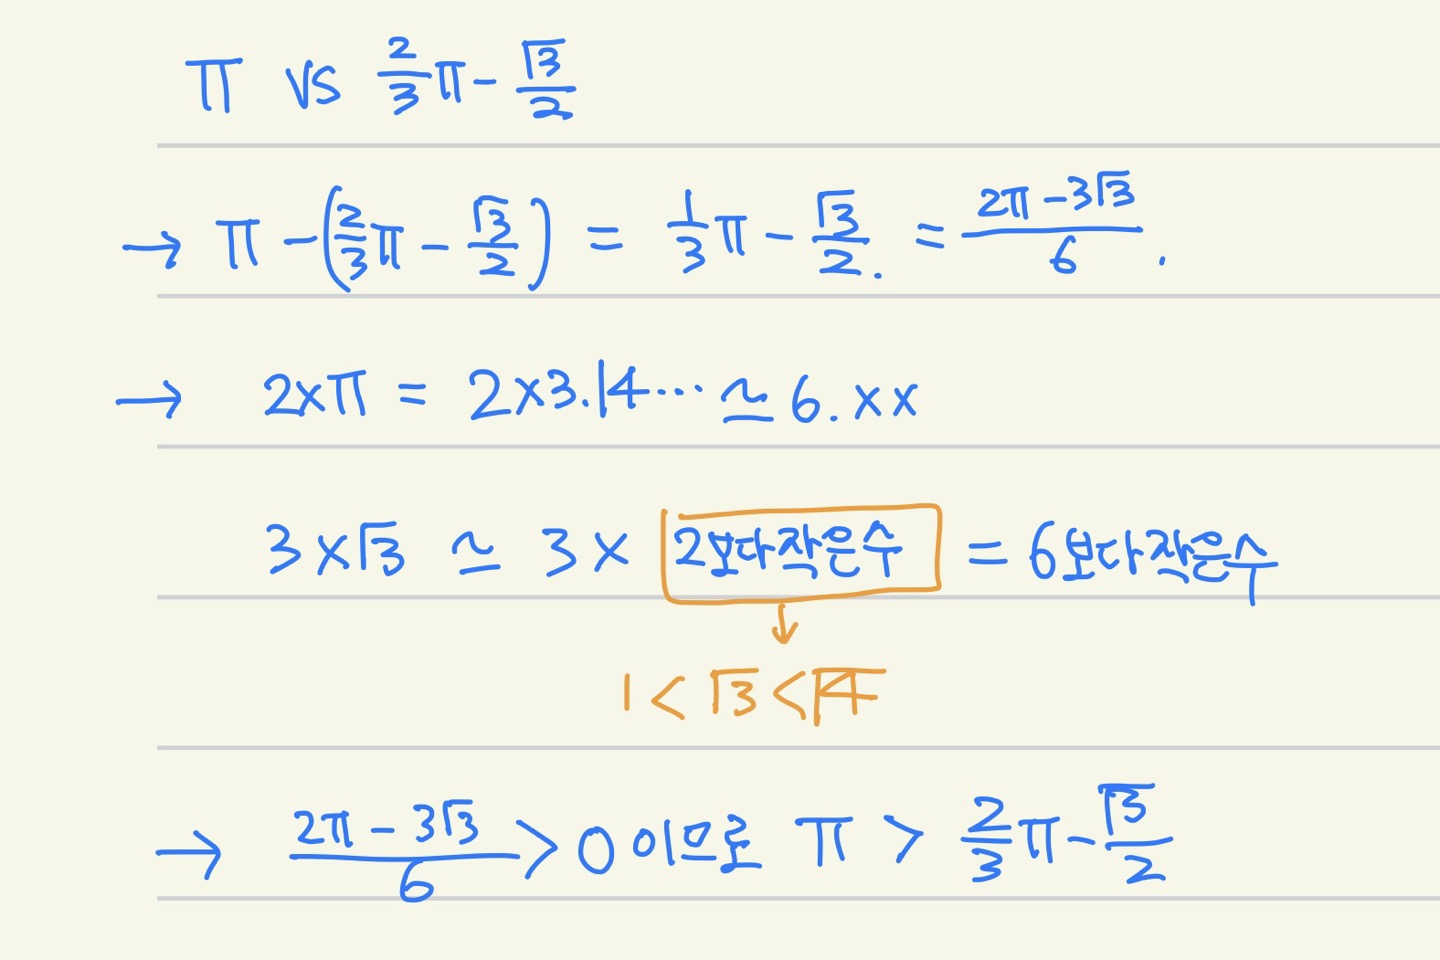 π vs 2/3 π - √3/2
→ π - (2/3 π - √3/2) = 1/3 π - √3/2. = (2π - 3√3)/6 .
→ 2×π = 2×3.14··· ≃ 6.××
3×√3 ≃ 3× 2보다작은수 = 6보다작은수
↓
1 < √3 < √4
→ (2π - 3√3)/6 > 0 이므로 π > 2/3 π - √3/2